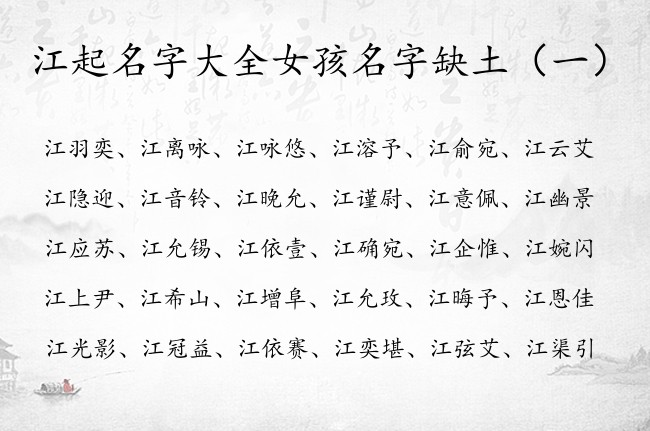 江起名字大全女孩名字缺土（一）
江羽奕、江离咏、江咏悠、江溶予、江俞宛、江云艾
江隐迎、江音铃、江晚允、江谨尉、江意佩、江幽景
江应苏、江允锡、江依壹、江确宛、江企惟、江婉闪
江上尹、江希山、江增阜、江允玫、江晦予、江恩佳
江光影、江冠益、江依赛、江奕堪、江弦艾、江渠引